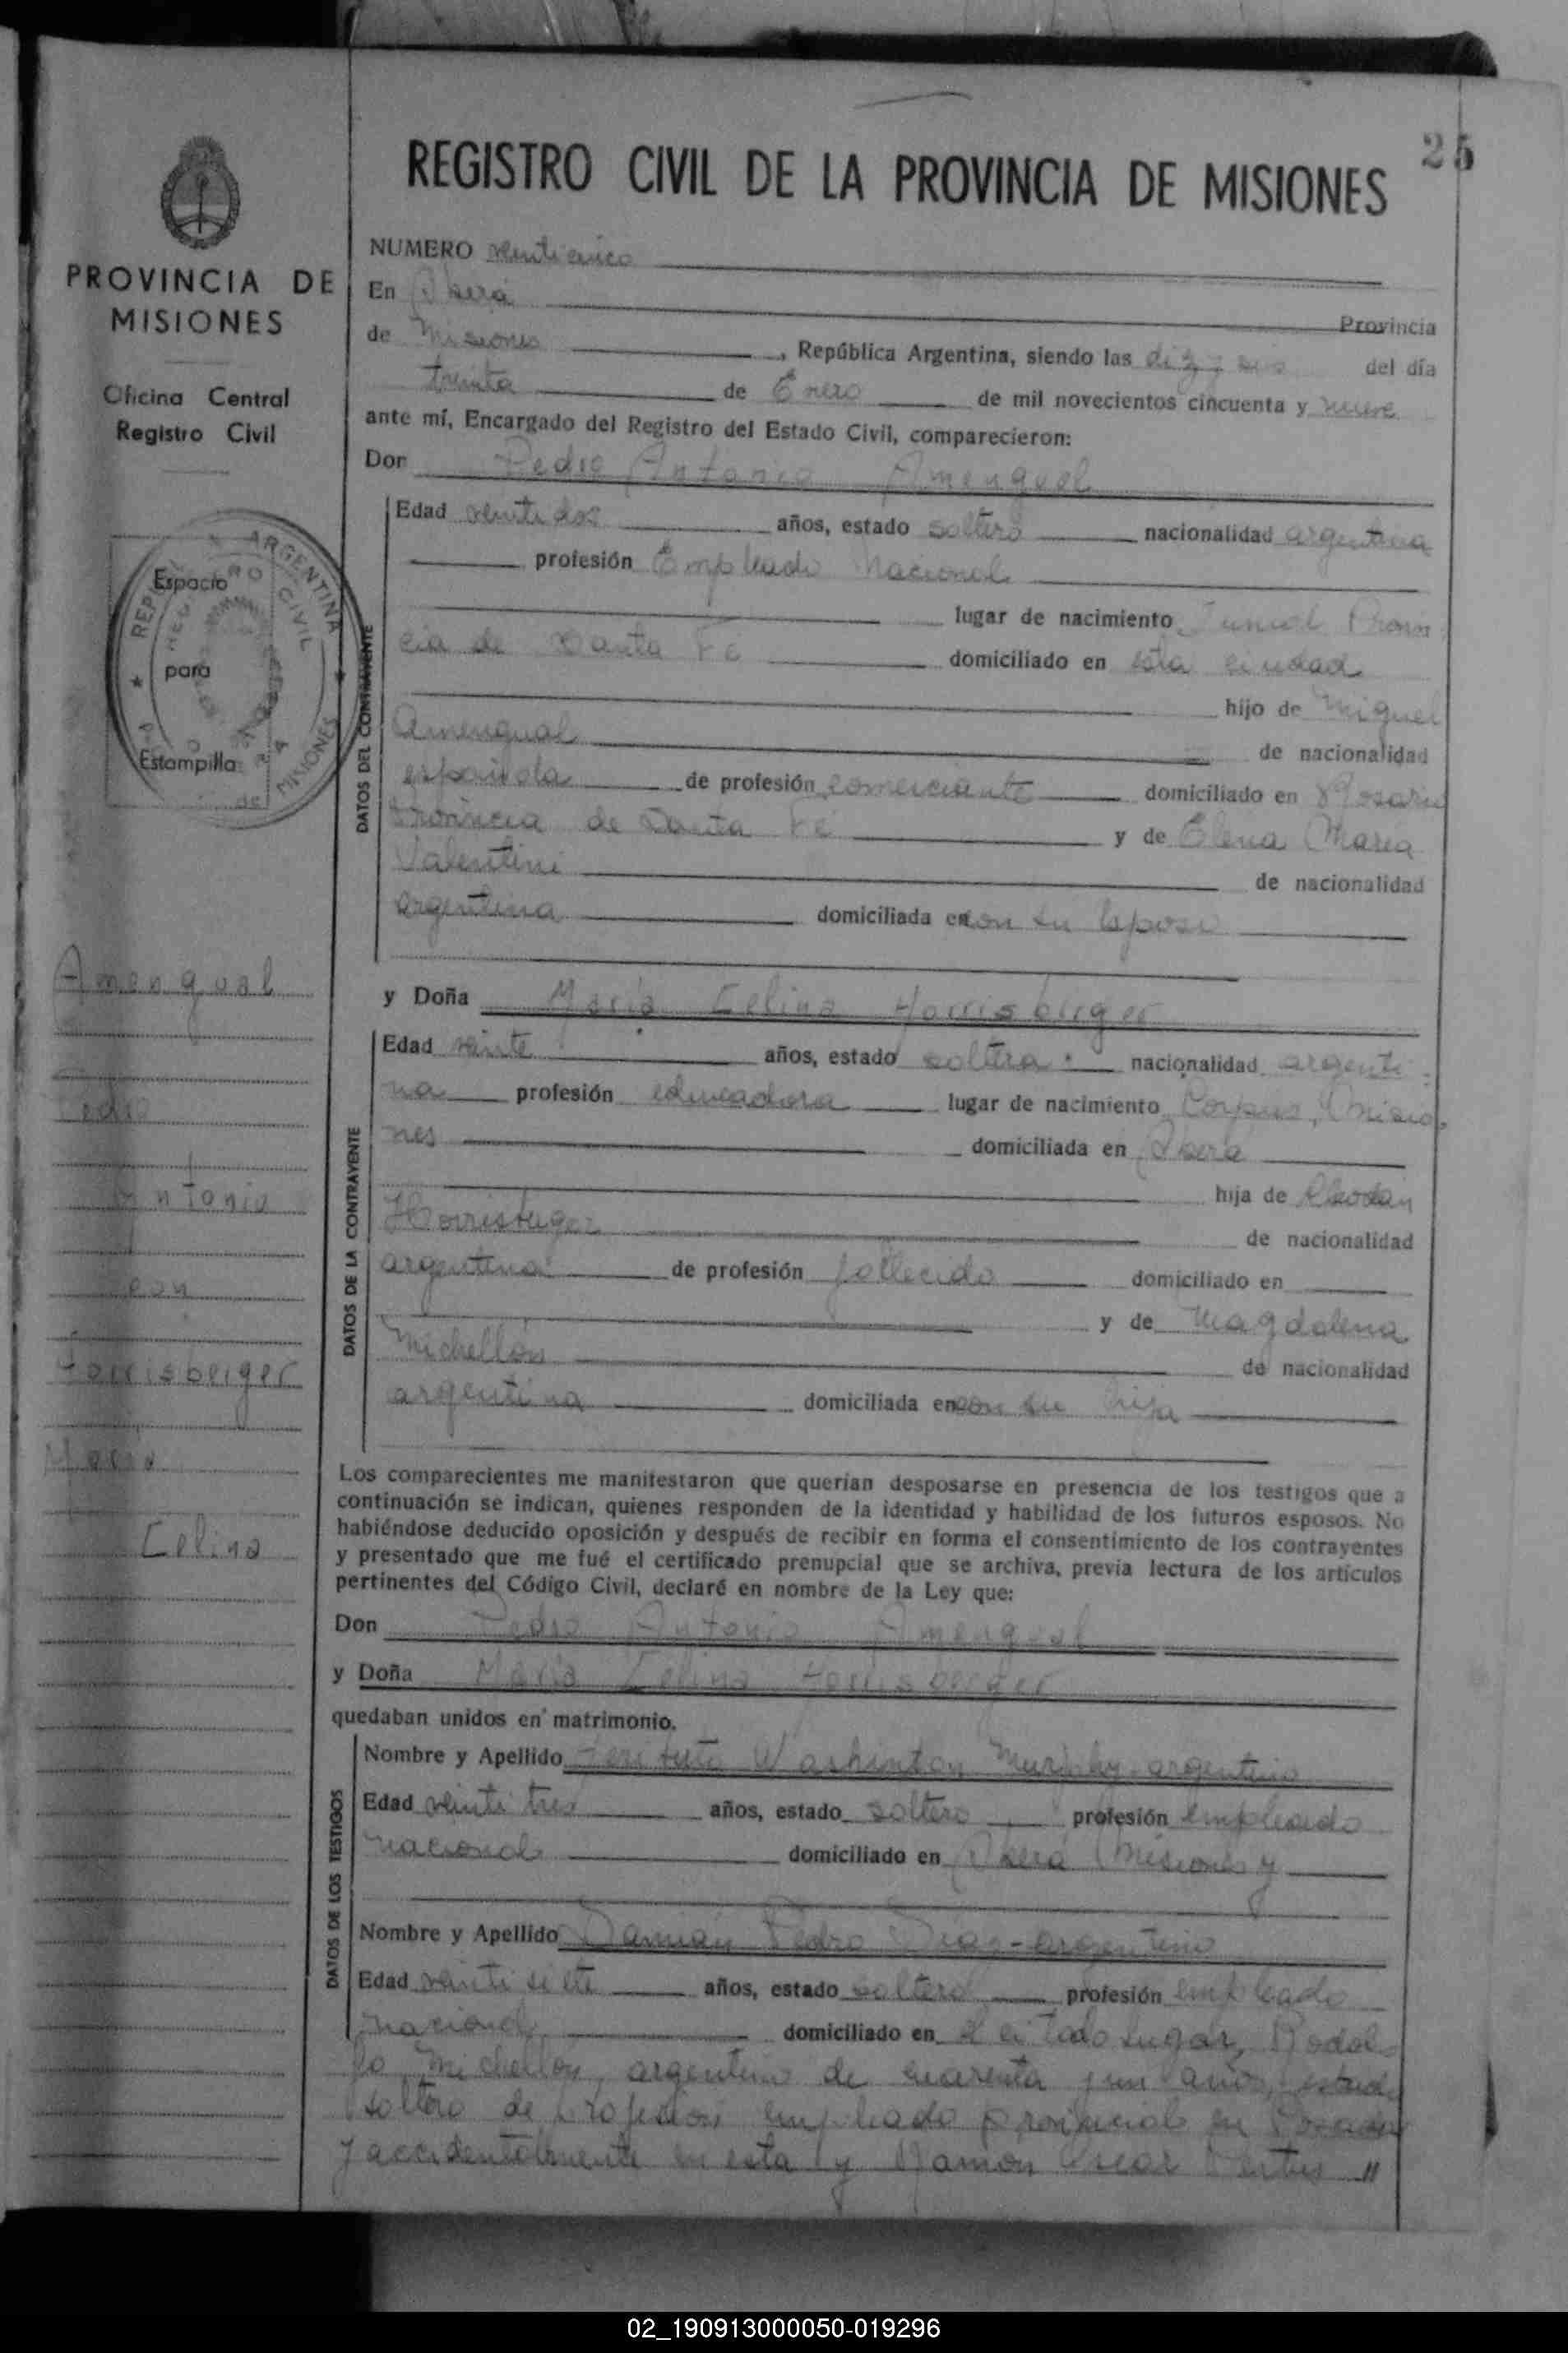 25
REGISTRO CIVIL DE LA PROVINCIA DE MISIONES
PROVINCIA DE
MISIONES
Oficina Central
Registro Civil
REPUBLICA ARGENTINA
REGISTRO CIVIL
MISIONES
Espacio
para
Estampilla
Amengual
Pedro
Antonio
con
Horrisberger
María
Celina
NUMERO veinticinco
En Oberá Provincia
de Misiones, República Argentina, siendo las diez y seis del día
treinta de Enero de mil novecientos cincuenta y nueve
ante mí, Encargado del Registro del Estado Civil, comparecieron:
Don Pedro Antonio Amengual
DATOS DEL CONTRAYENTE
Edad veintidos años, estado soltero nacionalidad argentina
profesión Empleado Nacional
lugar de nacimiento Provin
cia de Santa Fe domiciliado en esta ciudad
hijo de Miguel
Amengual de nacionalidad
española de profesión comerciante domiciliado en Rosario
Provincia de Santa Fe y de Elena María
Valentini de nacionalidad
argentina domiciliada en con su esposo
y Doña María Celina Horrisberger
DATOS DE LA CONTRAYENTE
Edad veinte años, estado soltera nacionalidad argenti-
na profesión educadora lugar de nacimiento Corpus, Misio-
nes domiciliada en Oberá
hija de
Horrisberger de nacionalidad
argentina de profesión fallecido domiciliado en
y de Magdalena
Michellón de nacionalidad
argentina domiciliada en con su hija
Los comparecientes me manifestaron que querían desposarse en presencia de los testigos que a
continuación se indican, quienes responden de la identidad y habilidad de los futuros esposos. No
habiéndose deducido oposición y después de recibir en forma el consentimiento de los contrayentes
y presentado que me fué el certificado prenupcial que se archiva, previa lectura de los artículos
pertinentes del Código Civil, declaré en nombre de la Ley que:
Don Pedro Antonio Amengual
y Doña María Celina Horrisberger
quedaban unidos en matrimonio.
DATOS DE LOS TESTIGOS
Nombre y Apellido Washinton Murphy-argentino
Edad veinti tres años, estado soltero profesión empleado
nacional domiciliado en Oberá Misiones y
Nombre y Apellido Damián Pedro Díaz-argentino
Edad veinti siete años, estado soltero profesión empleado
nacional domiciliado en el citado lugar, Rodol-
fo Michellón, argentino de cuarenta y un años, estado
soltero de profesión empleado provincial en Posadas
y accidentalmente en esta y Ramón Oscar "
02_190913000050-019296